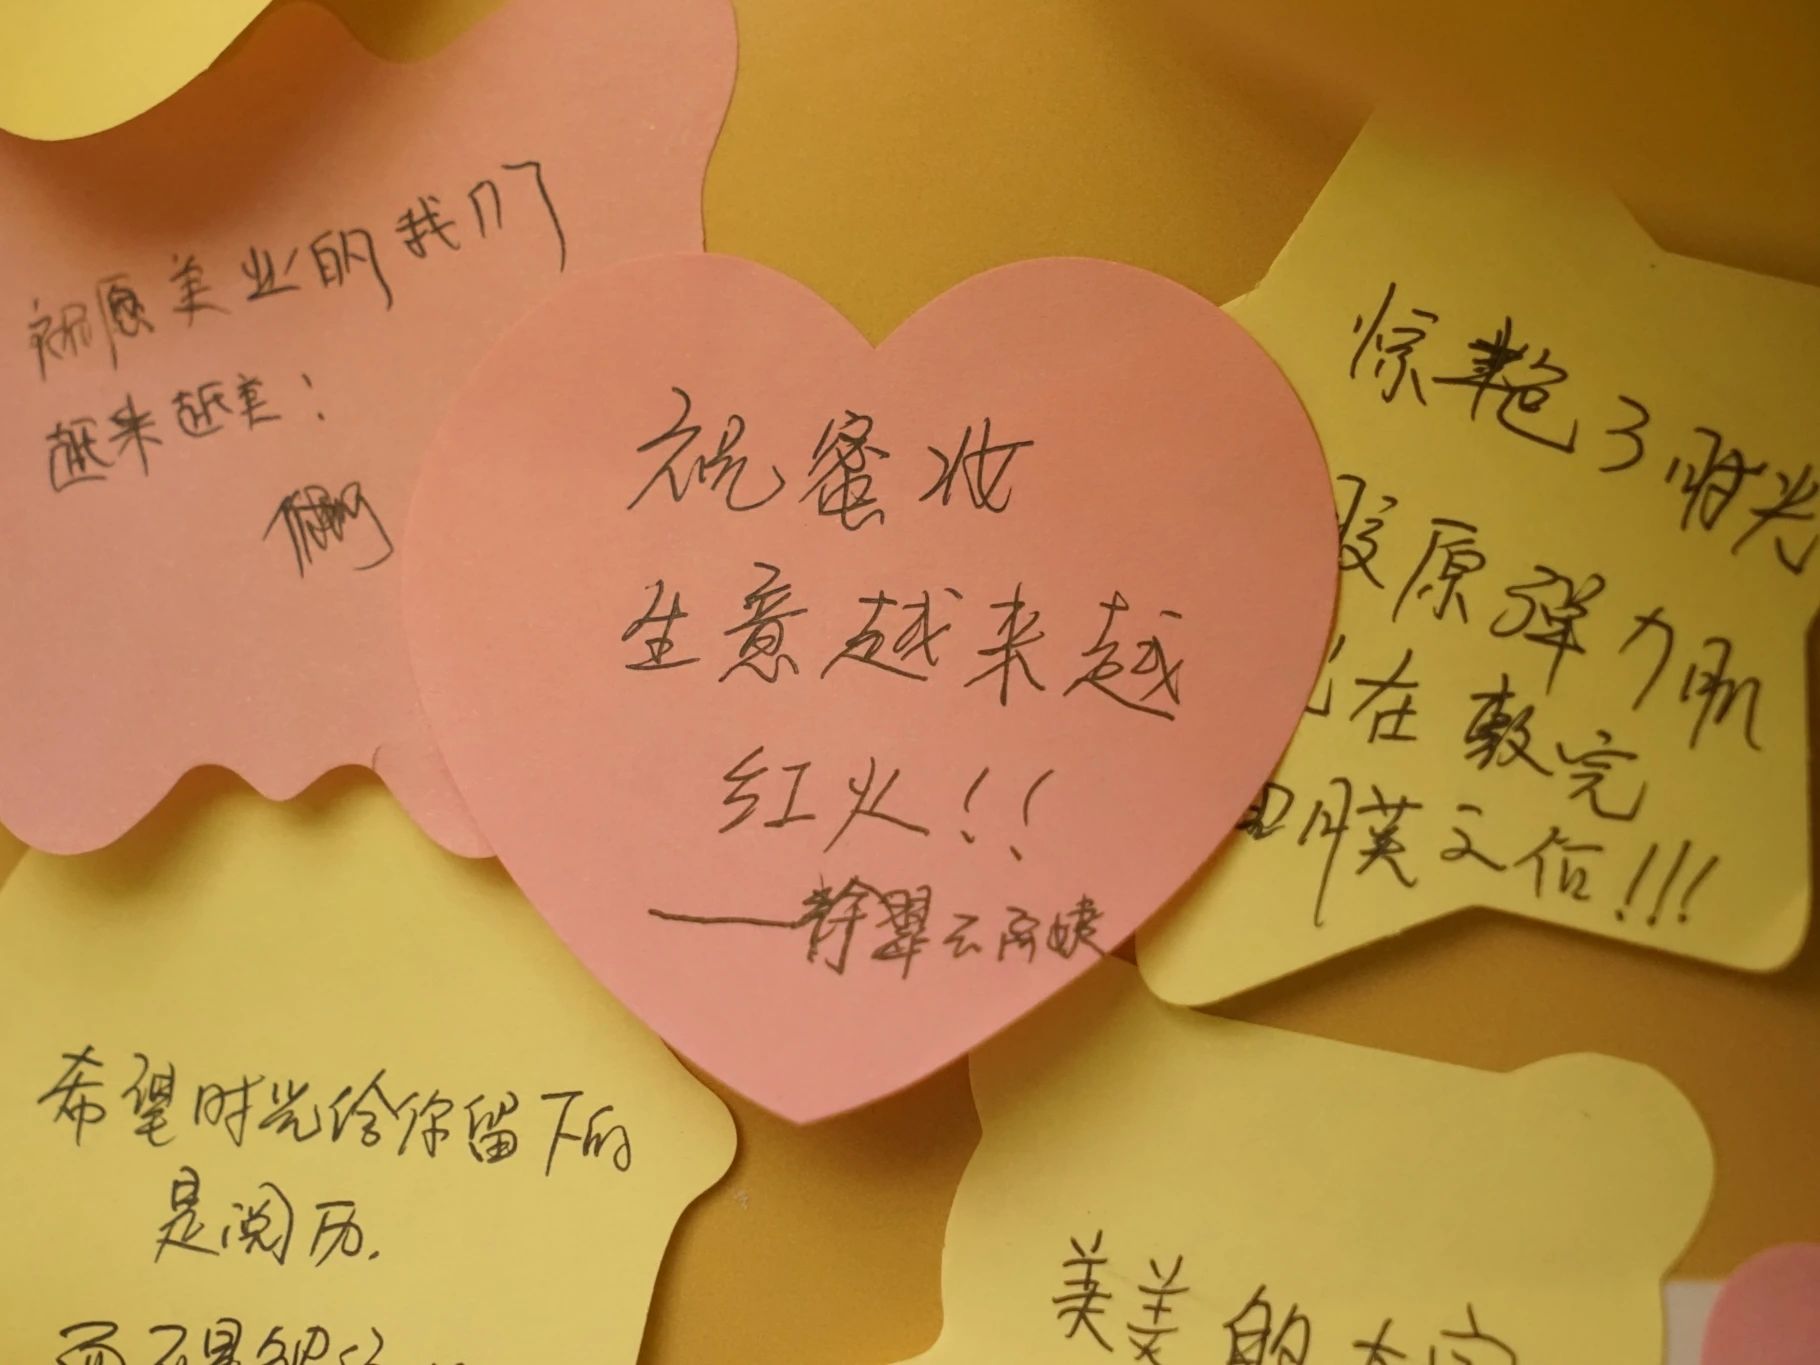 祝愿美业的我们
越来越美!
祝蜜妆
生意越来越
红火!!
惊艳了时光
胶原弹力肌
在敷完
膜之后!!!
希望时光给你留下的
是阅历.
而不是
美美的